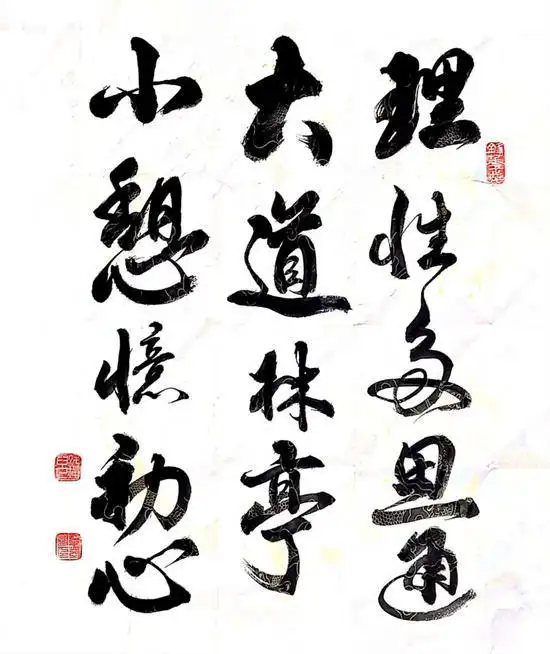 理性多思通
大道林亭
小憩憶初心